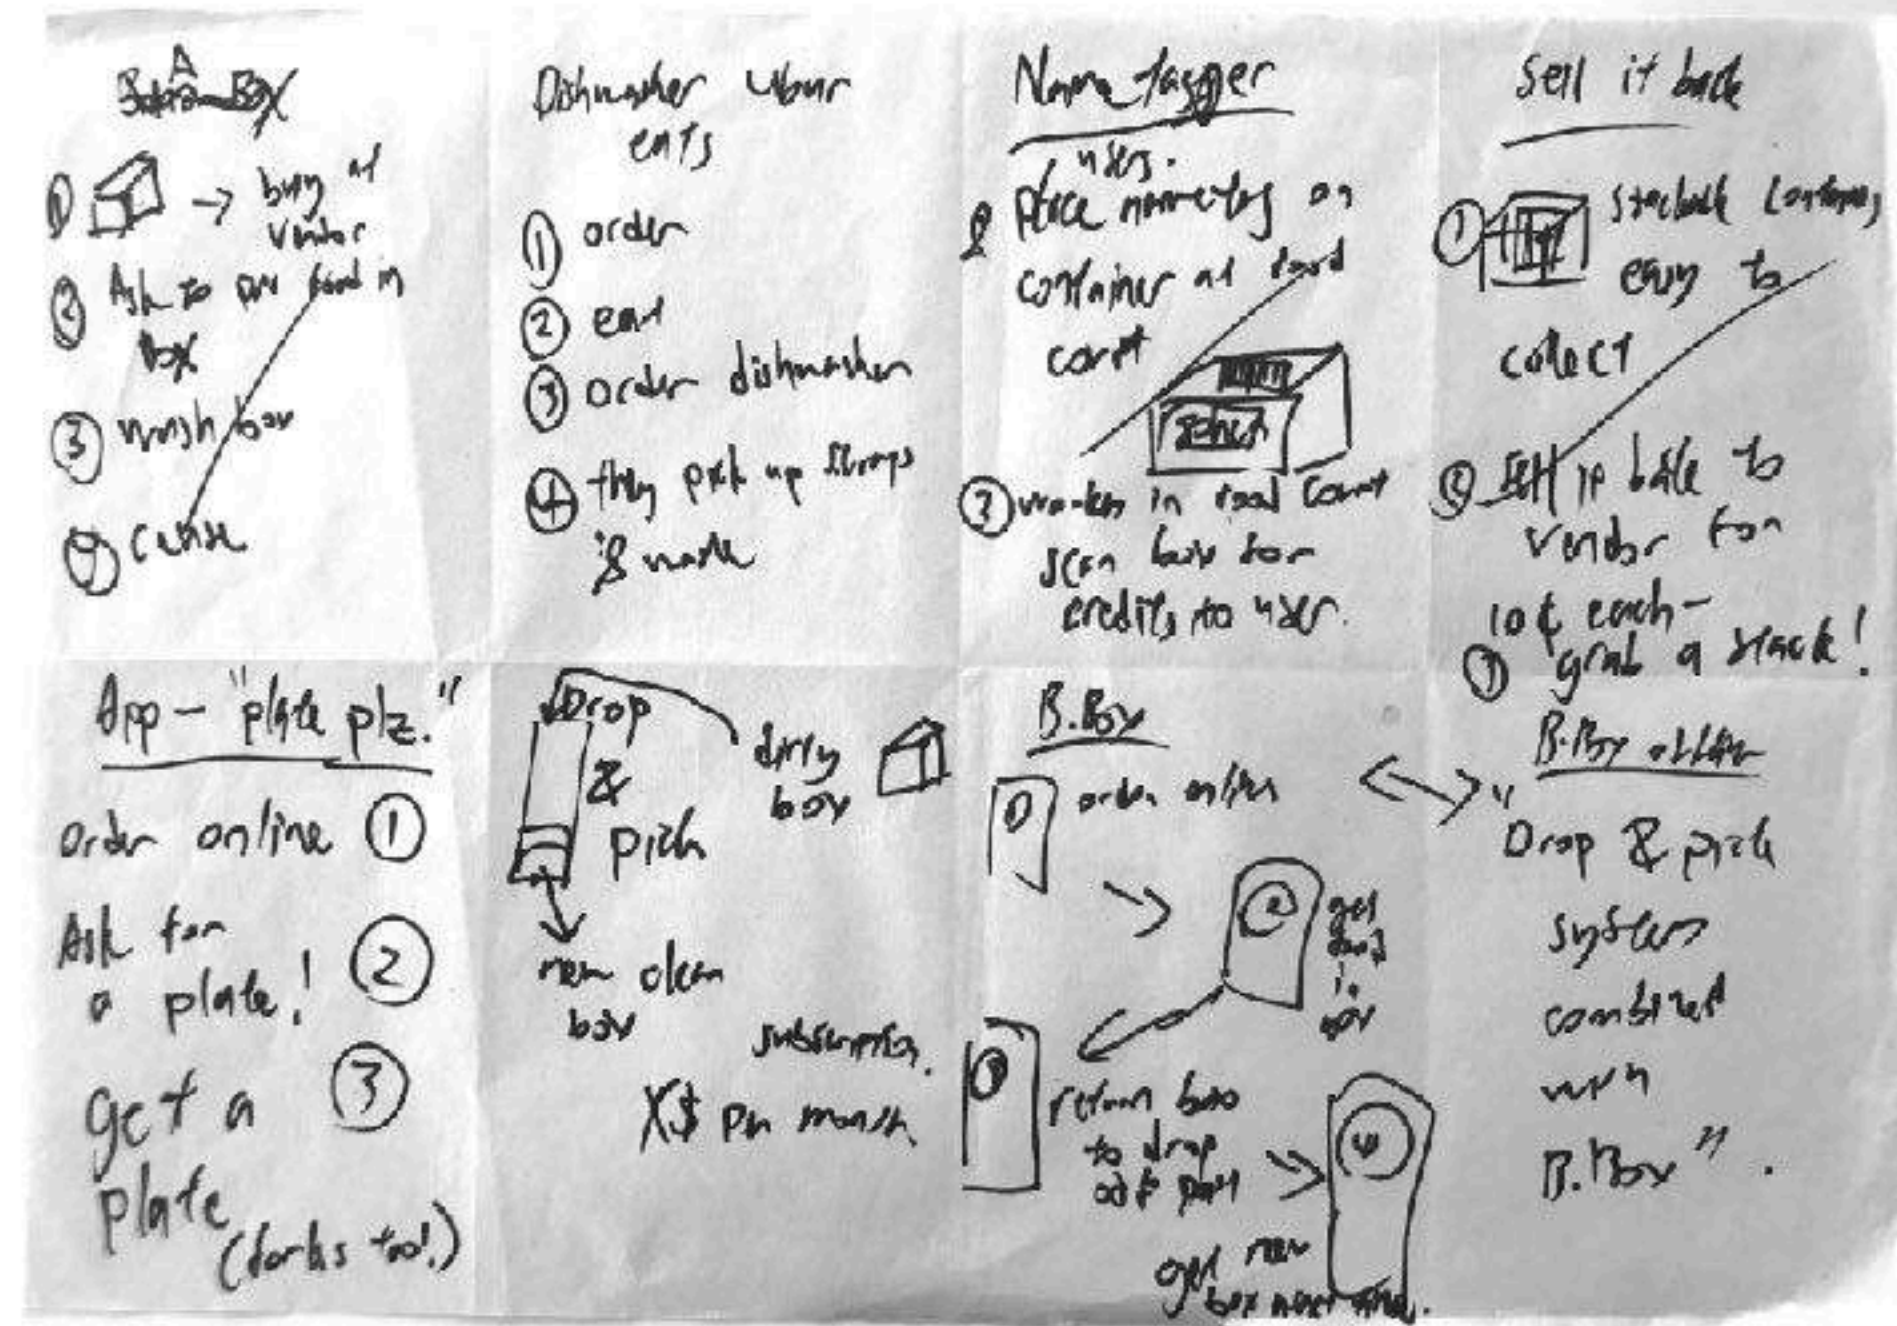 A
① → buy at
vendor
② Ask to put food in
box
③ wash box
④
Dishwasher
eats
① order
② eat
③ order dishwasher
④ they pick up scraps
& wash
Name tagger
users.
place nametag on
container at food
court
② workers in food court
scan box for
credits to user.
Sell it back
① stackable containers
easy to
collect
② sell it back to
vendor for
10¢ each-
③ grab a stack!
App - "plate plz."
order online ①
Ask for
a plate! ②
get a ③
plate
(forks too!)
Drop
&
pick
dirty
box
new clean
box
subscription.
X$ per month
B.Box
① order online
② get
food
in
box
③ return box
to drop
off part
④
get new
box next time.
B.Box
"Drop & pick
system
combined
with
B.Box".